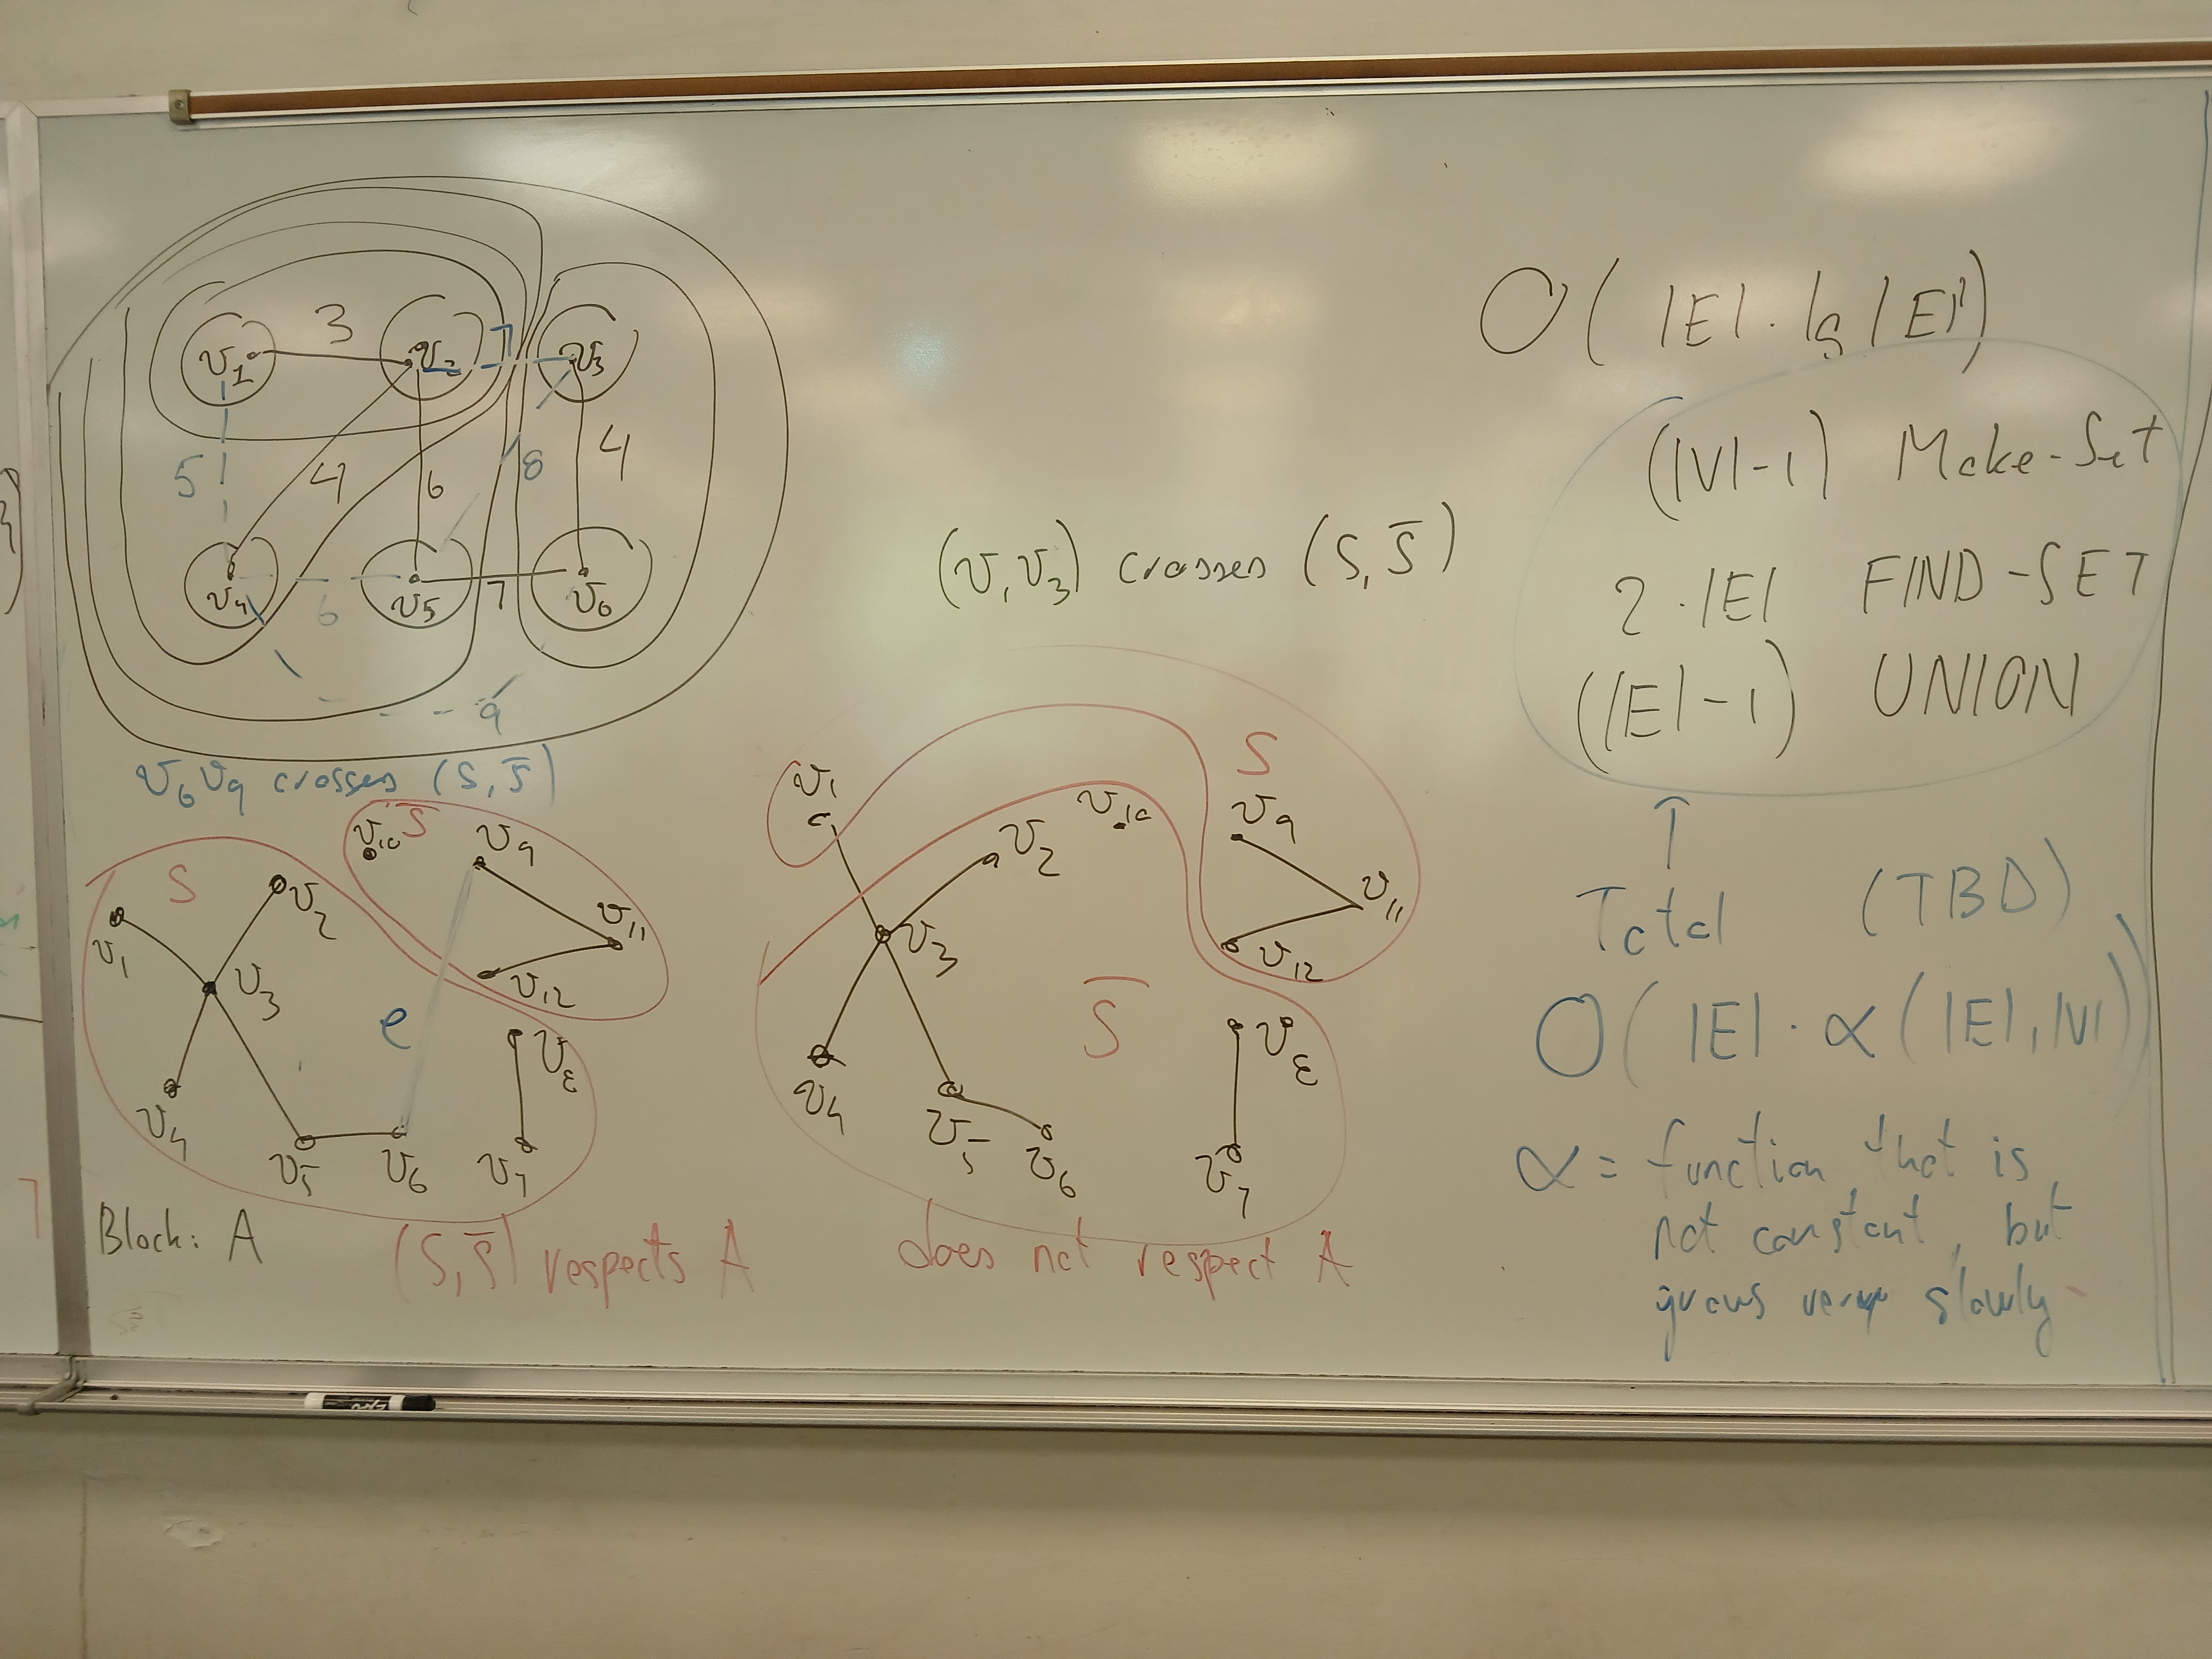 3
7
v₁ v₂ v₃
5 4 6 8 4
v₄ 6 v₅ 7 v₆
9
v₆v₉ crosses (S, S̅)
S
v₁₀ S̅ v₉
v₂
v₁ v₁₁
v₃ v₁₂
e
v₈
v₄
v₅ v₆ v₇
Black: A
(S, S̅) respects A
(v₁v₃) crosses (S, S̅)
S
v₁ v₉
v₂ v₁₀
v₁₁
v₃ v₁₂
S̅
v₈
v₄ v₅ v₆ v₇
does not respect A
O( |E| · lg |E|)
(|V|-1) Make-Set
2·|E| FIND-SET
(|E|-1) UNION
↑
Total (TBD)
O( |E| · α (|E|, |V|))
α = function that is
not constant, but
grows very slowly